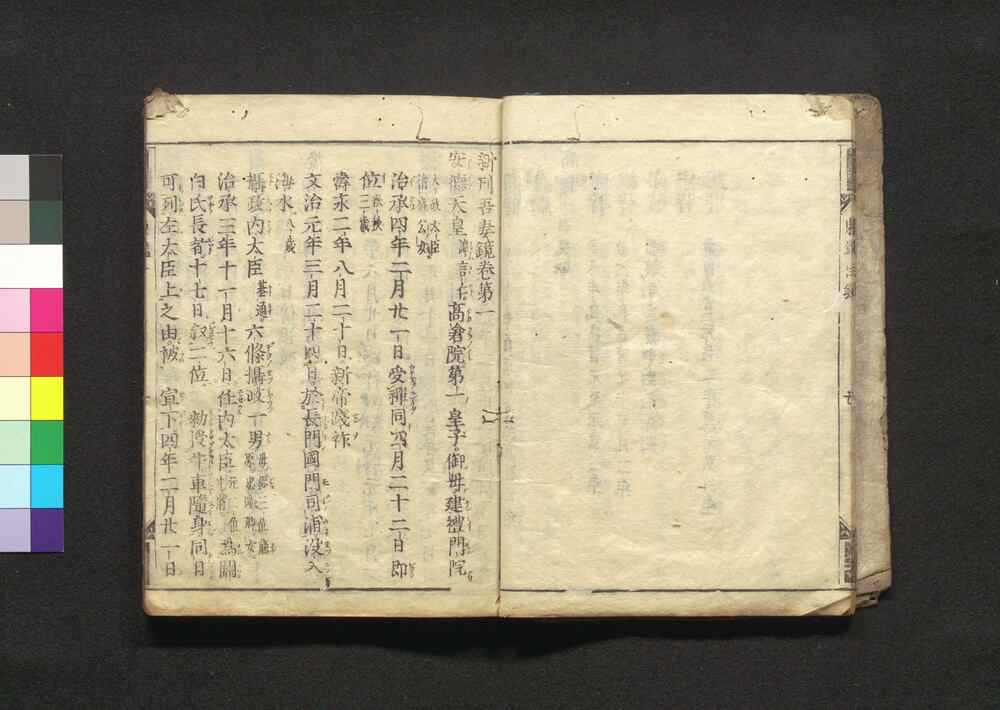 新刊吾妻鏡卷第一
安德天皇 諱言仁 高倉院第一皇子御母建禮門院
太政大臣
清盛公女
治承四年二月廿一日受禪同四月二十二日即
位 三歳
壽永二年八月二十日新帝踐祚
文治元年三月二十四日於長門國門司浦沒入
海水 八歳
攝政內太臣 基通 六條攝政一男
治承三年十一月十六日任內太臣 元 位 為關
白氏長者十七日叙二位 勅授牛車隨身同日
可列左太臣上之由被 宣下四年二月廿一日